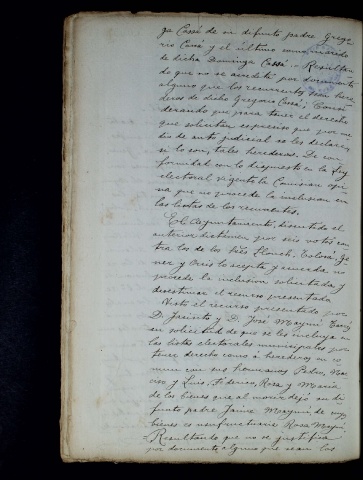 ga Cassá de su difunto padre Grego
rio Cassá y el último como marido
de dicha Dominga Cassá. - Resultan
do que no se acredita por documento
alguno que los recurrentes sean here
deros de dicho Gregorio Cassá; Consi
derando que para tener el derecho
que solicitan es preciso que por me
dio de auto judicial se les declare,
si lo son, tales herederos. De con
formidad con lo dispuesto en la Ley
electoral vigente la Comision opi
na que no procede la inclusion en
las listas de los recurrentes.
El Ayuntamiento, discutido el
anterior dictamen por seis votos con
tra los de los Sres. Llonch,
y lo acepta y acuerda no
procede la inclusion solicitada y
desestimar el recurso presentado
Visto el recurso presentado por
D. Jacinto y D. José
en solicitud de que se les incluya en
las listas electorales municipales por
tener derecho como á herederos en co
mun con sus hermanos Pedro, Nar
ciso y Luis, Rosa y María
de los bienes que al morir dejó su di
funto padre Jaime de cuyos
bienes es usufructuaria Rosa
- Resultando que no se justifica
por documento alguno que sean los